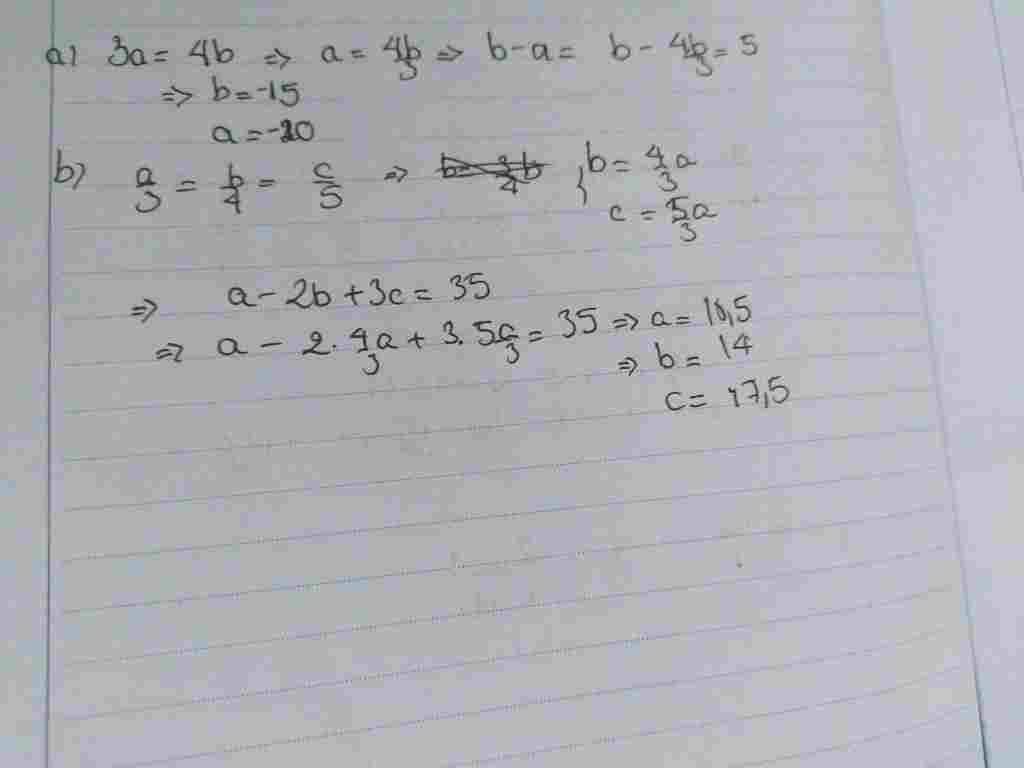 a) 3a = 4b ⇒ a = 4b/3 ⇒ b - a = b - 4b/3 = 5
⇒ b = -15
a = -20
b) a/3 = b/4 = c/5 ⇒ { b = 4/3 a
c = 5/3 a
⇒ a - 2b + 3c = 35
⇒ a - 2. 4/3 a + 3. 5a/3 = 35 ⇒ a = 10,5
⇒ b = 14
c = 17,5